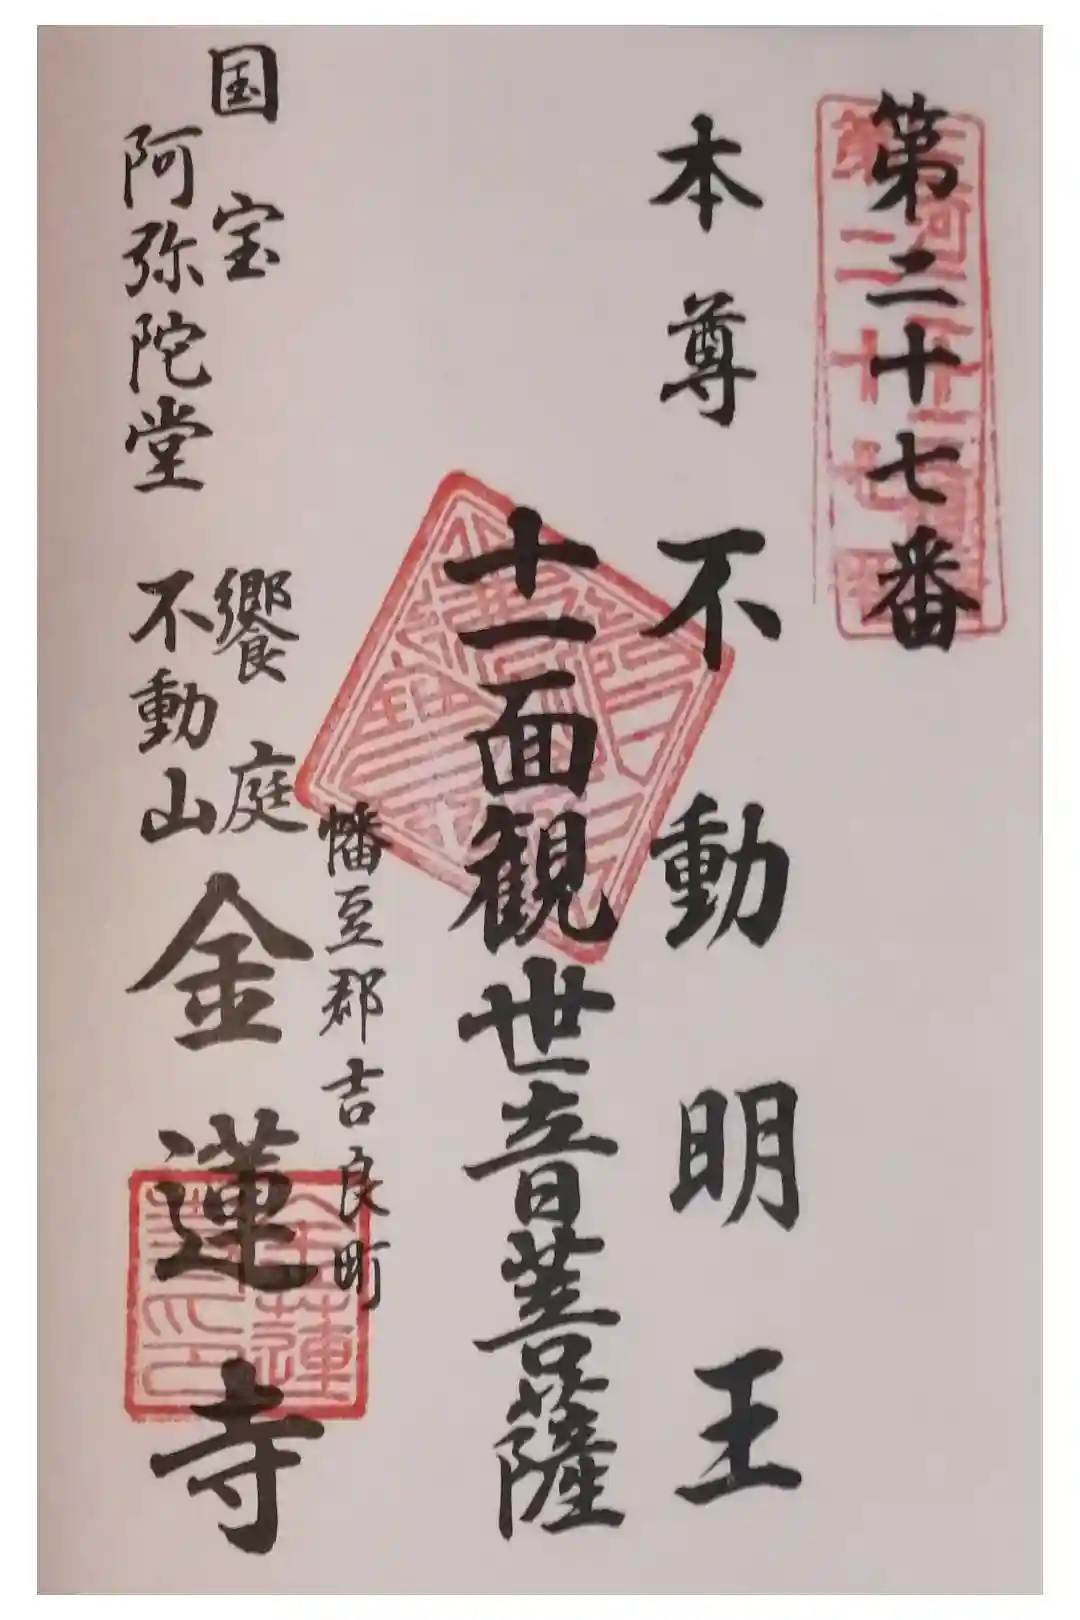 第二十七番
本尊 不動明王
十一面観世音菩薩
幡豆郡吉良町
饗庭
不動山 金蓮寺
国宝
阿弥陀堂
第二十七番
金蓮寺印